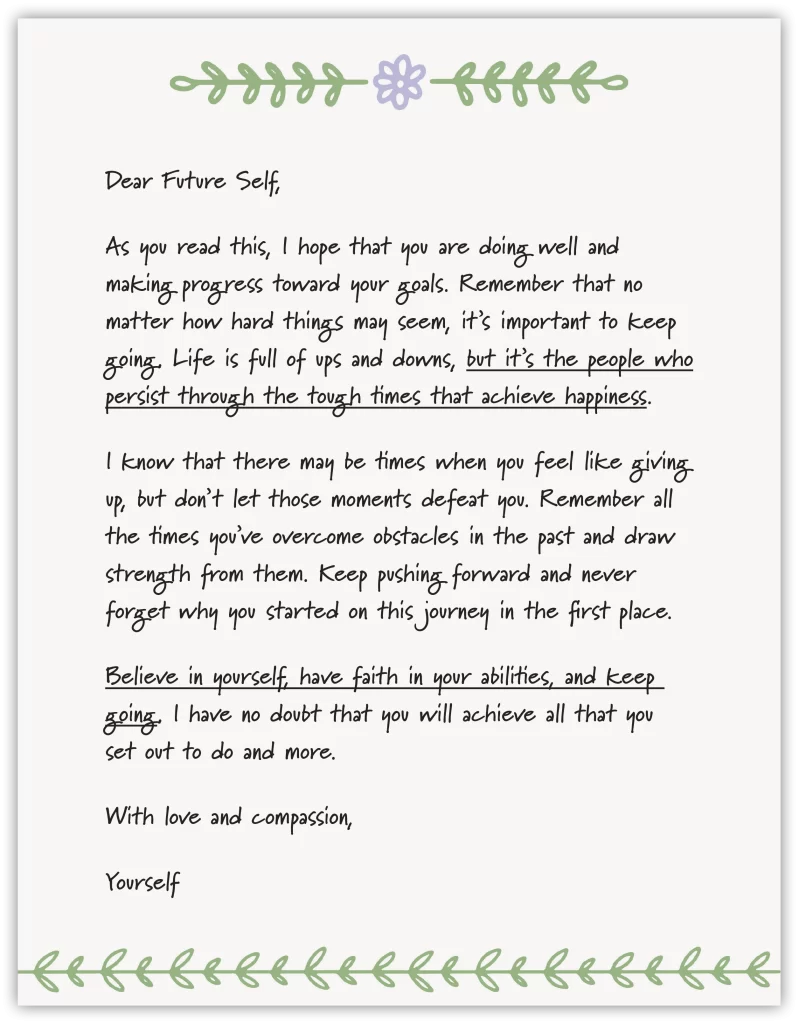 Dear Future Self,
As you read this, I hope that you are doing well and
making progress toward your goals. Remember that no
matter how hard things may seem, it's important to keep
going. Life is full of ups and downs, but it's the people who
persist through the tough times that achieve happiness.
I know that there may be times when you feel like giving
up, but don't let those moments defeat you. Remember all
the times you've overcome obstacles in the past and draw
strength from them. Keep pushing forward and never
forget why you started on this journey in the first place.
Believe in yourself, have faith in your abilities, and keep
going. I have no doubt that you will achieve all that you
set out to do and more.
With love and compassion,
Yourself